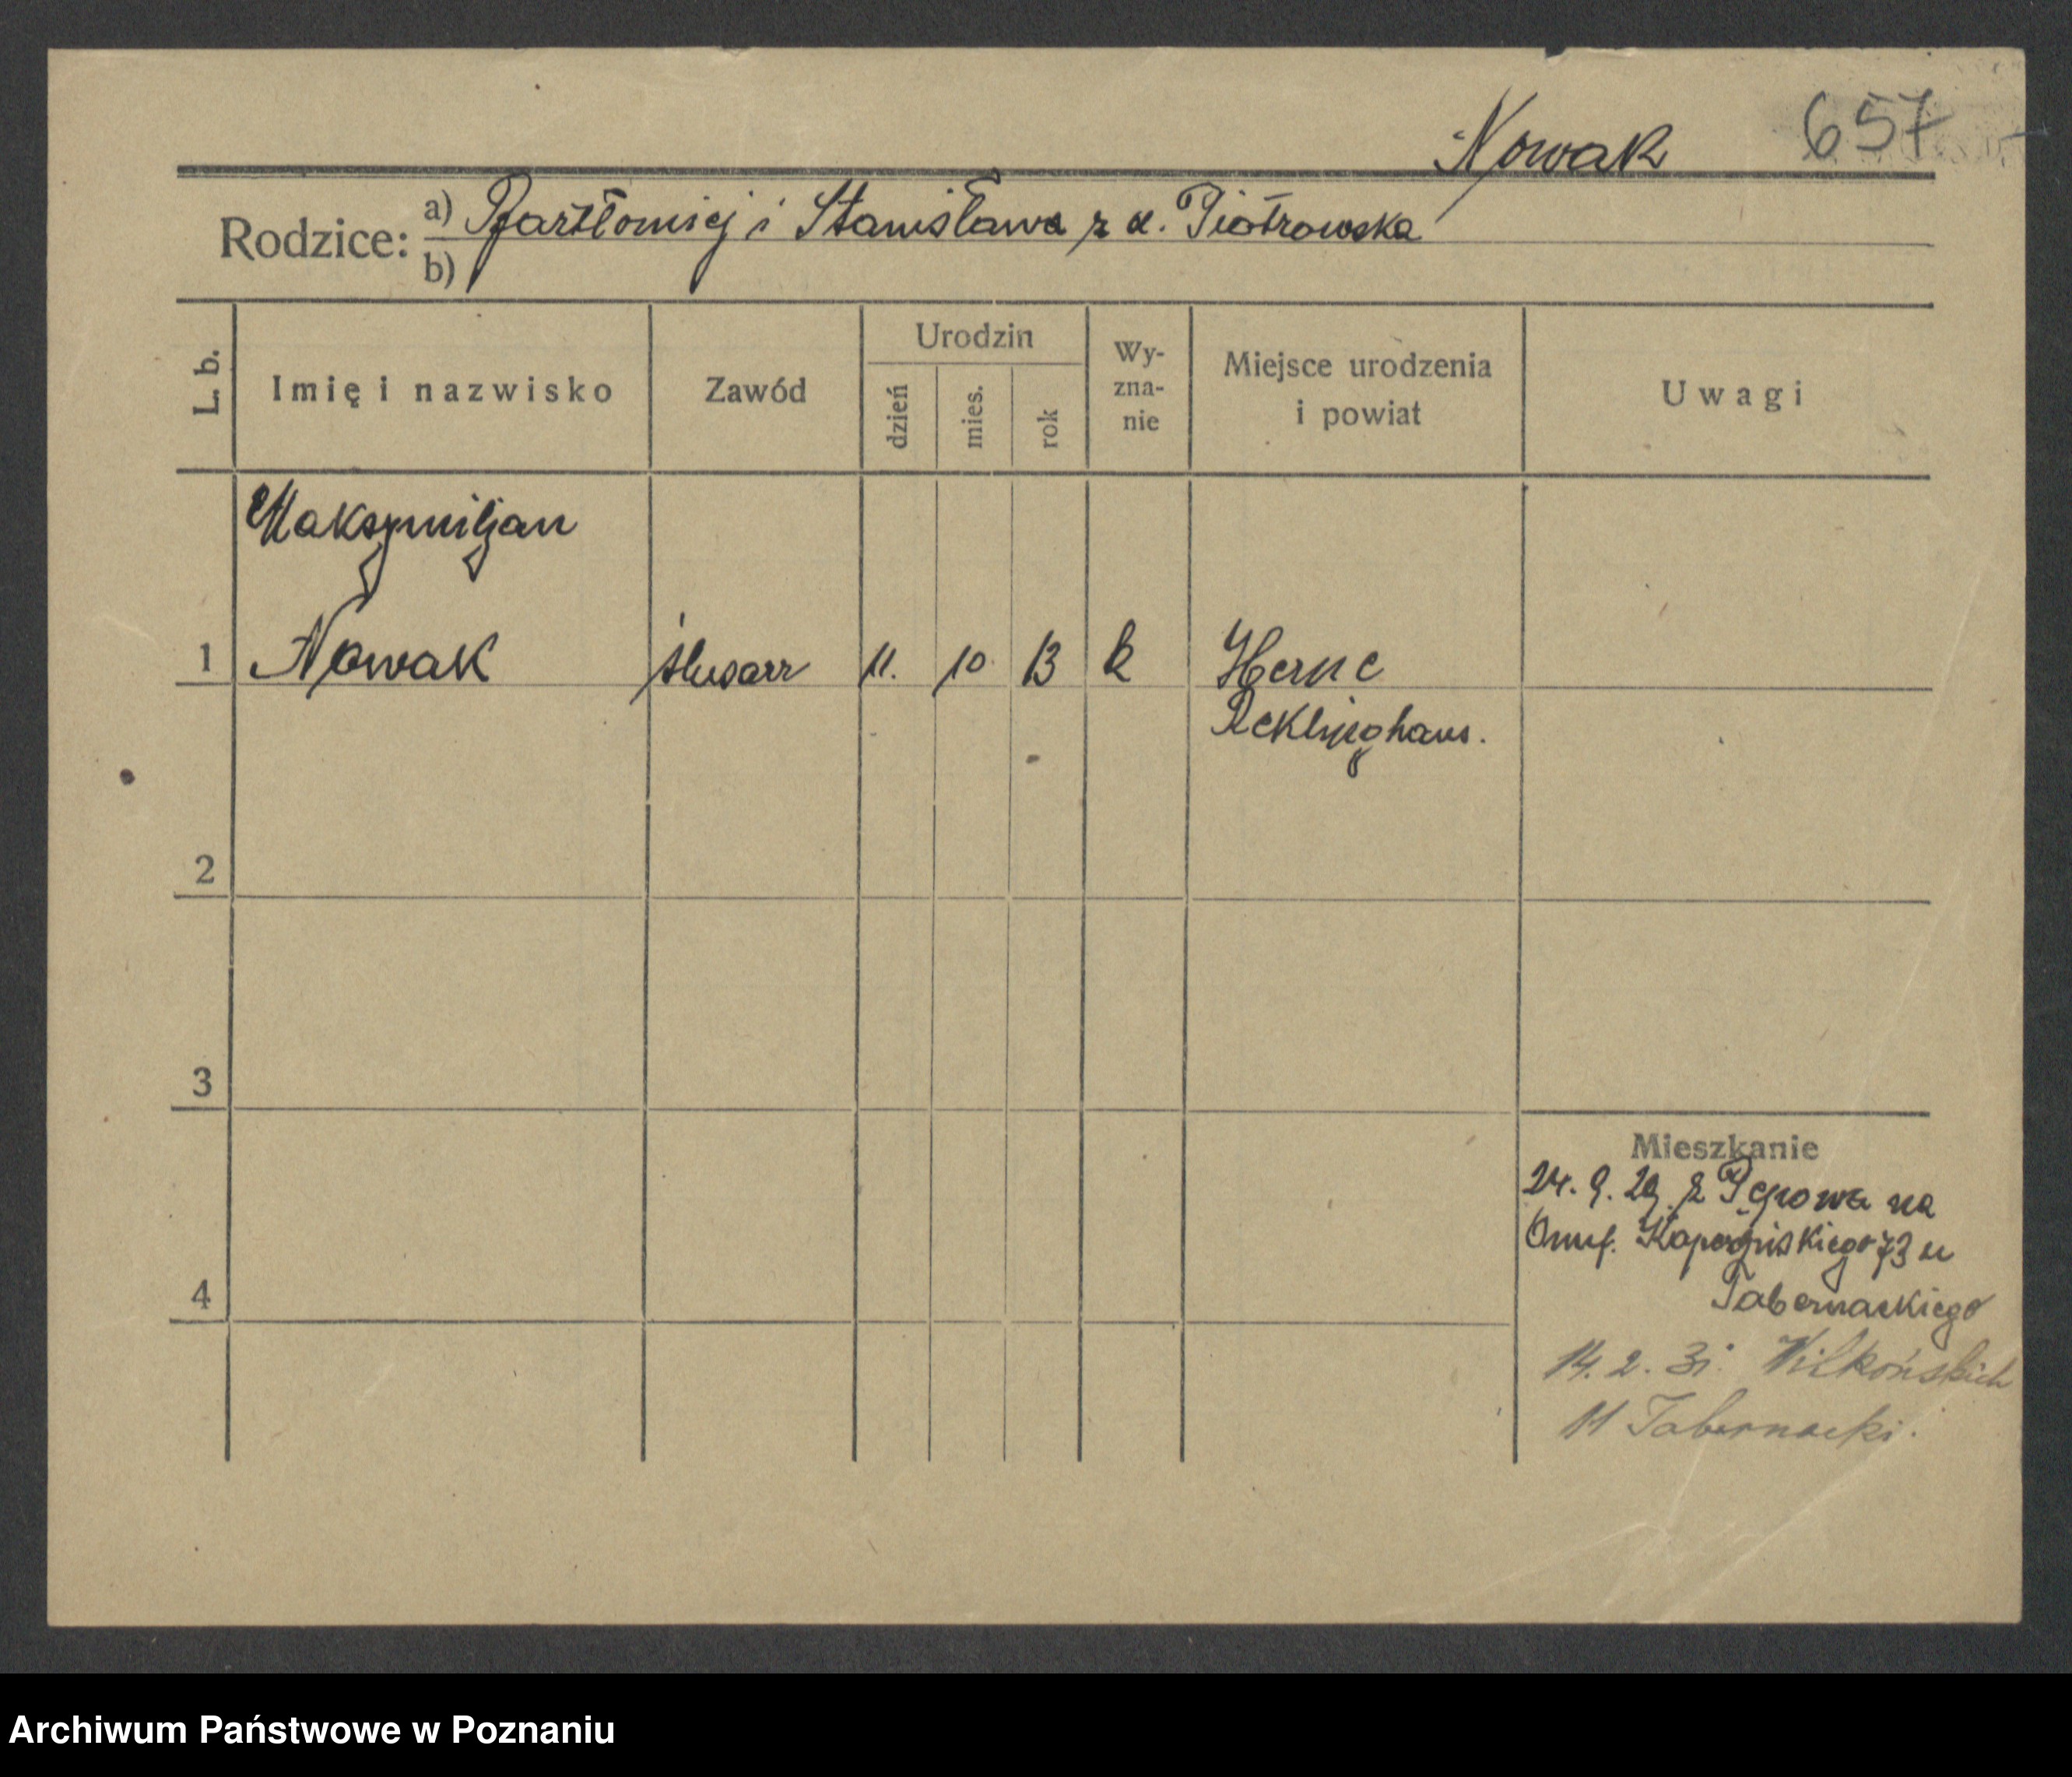 Nowak 657
Rodzice: a) Bartłomiej i Stanisława z d. Piotrowska
b)
L. b. Imię i nazwisko Zawód Urodzin dzień mies. rok Wy-zna-nie Miejsce urodzenia i powiat Uwagi
Maksymiljan
1 Nowak ślusarz 11. 10. 13 k Herne
Reklinghaus.
2
3
Mieszkanie
24. 9. 29 z Pępowa na
Kaperyńskiego 73 u
4 Tabernackiego
14. 2. 31. Wilkońskich
11 Tabernacki.
Archiwum Państwowe w Poznaniu